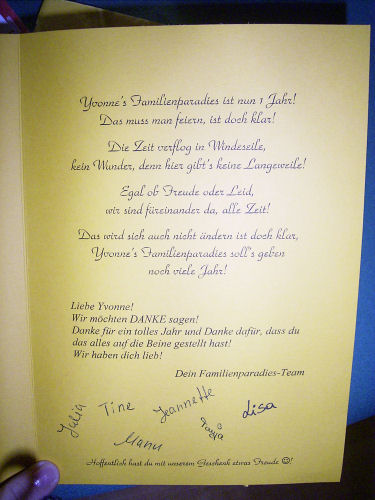 Yvonne's Familienparadies ist nun 1 Jahr!
Das muss man feiern, ist doch klar!
Die Zeit verflog in Windeseile,
kein Wunder, denn hier gibt's keine Langeweile!
Egal ob Freude oder Leid,
wir sind füreinander da, alle Zeit!
Das wird sich auch nicht ändern ist doch klar,
Yvonne's Familienparadies soll's geben
noch viele Jahr!
Liebe Yvonne!
Wir möchten DANKE sagen!
Danke für ein tolles Jahr und Danke dafür, dass du
das alles auf die Beine gestellt hast!
Wir haben dich lieb!
Dein Familienparadies-Team
Julia
Tine
Jeannette
Tanja
Lisa
Manu
Hoffentlich hast du mit unserem Geschenk etwas Freude ☺!